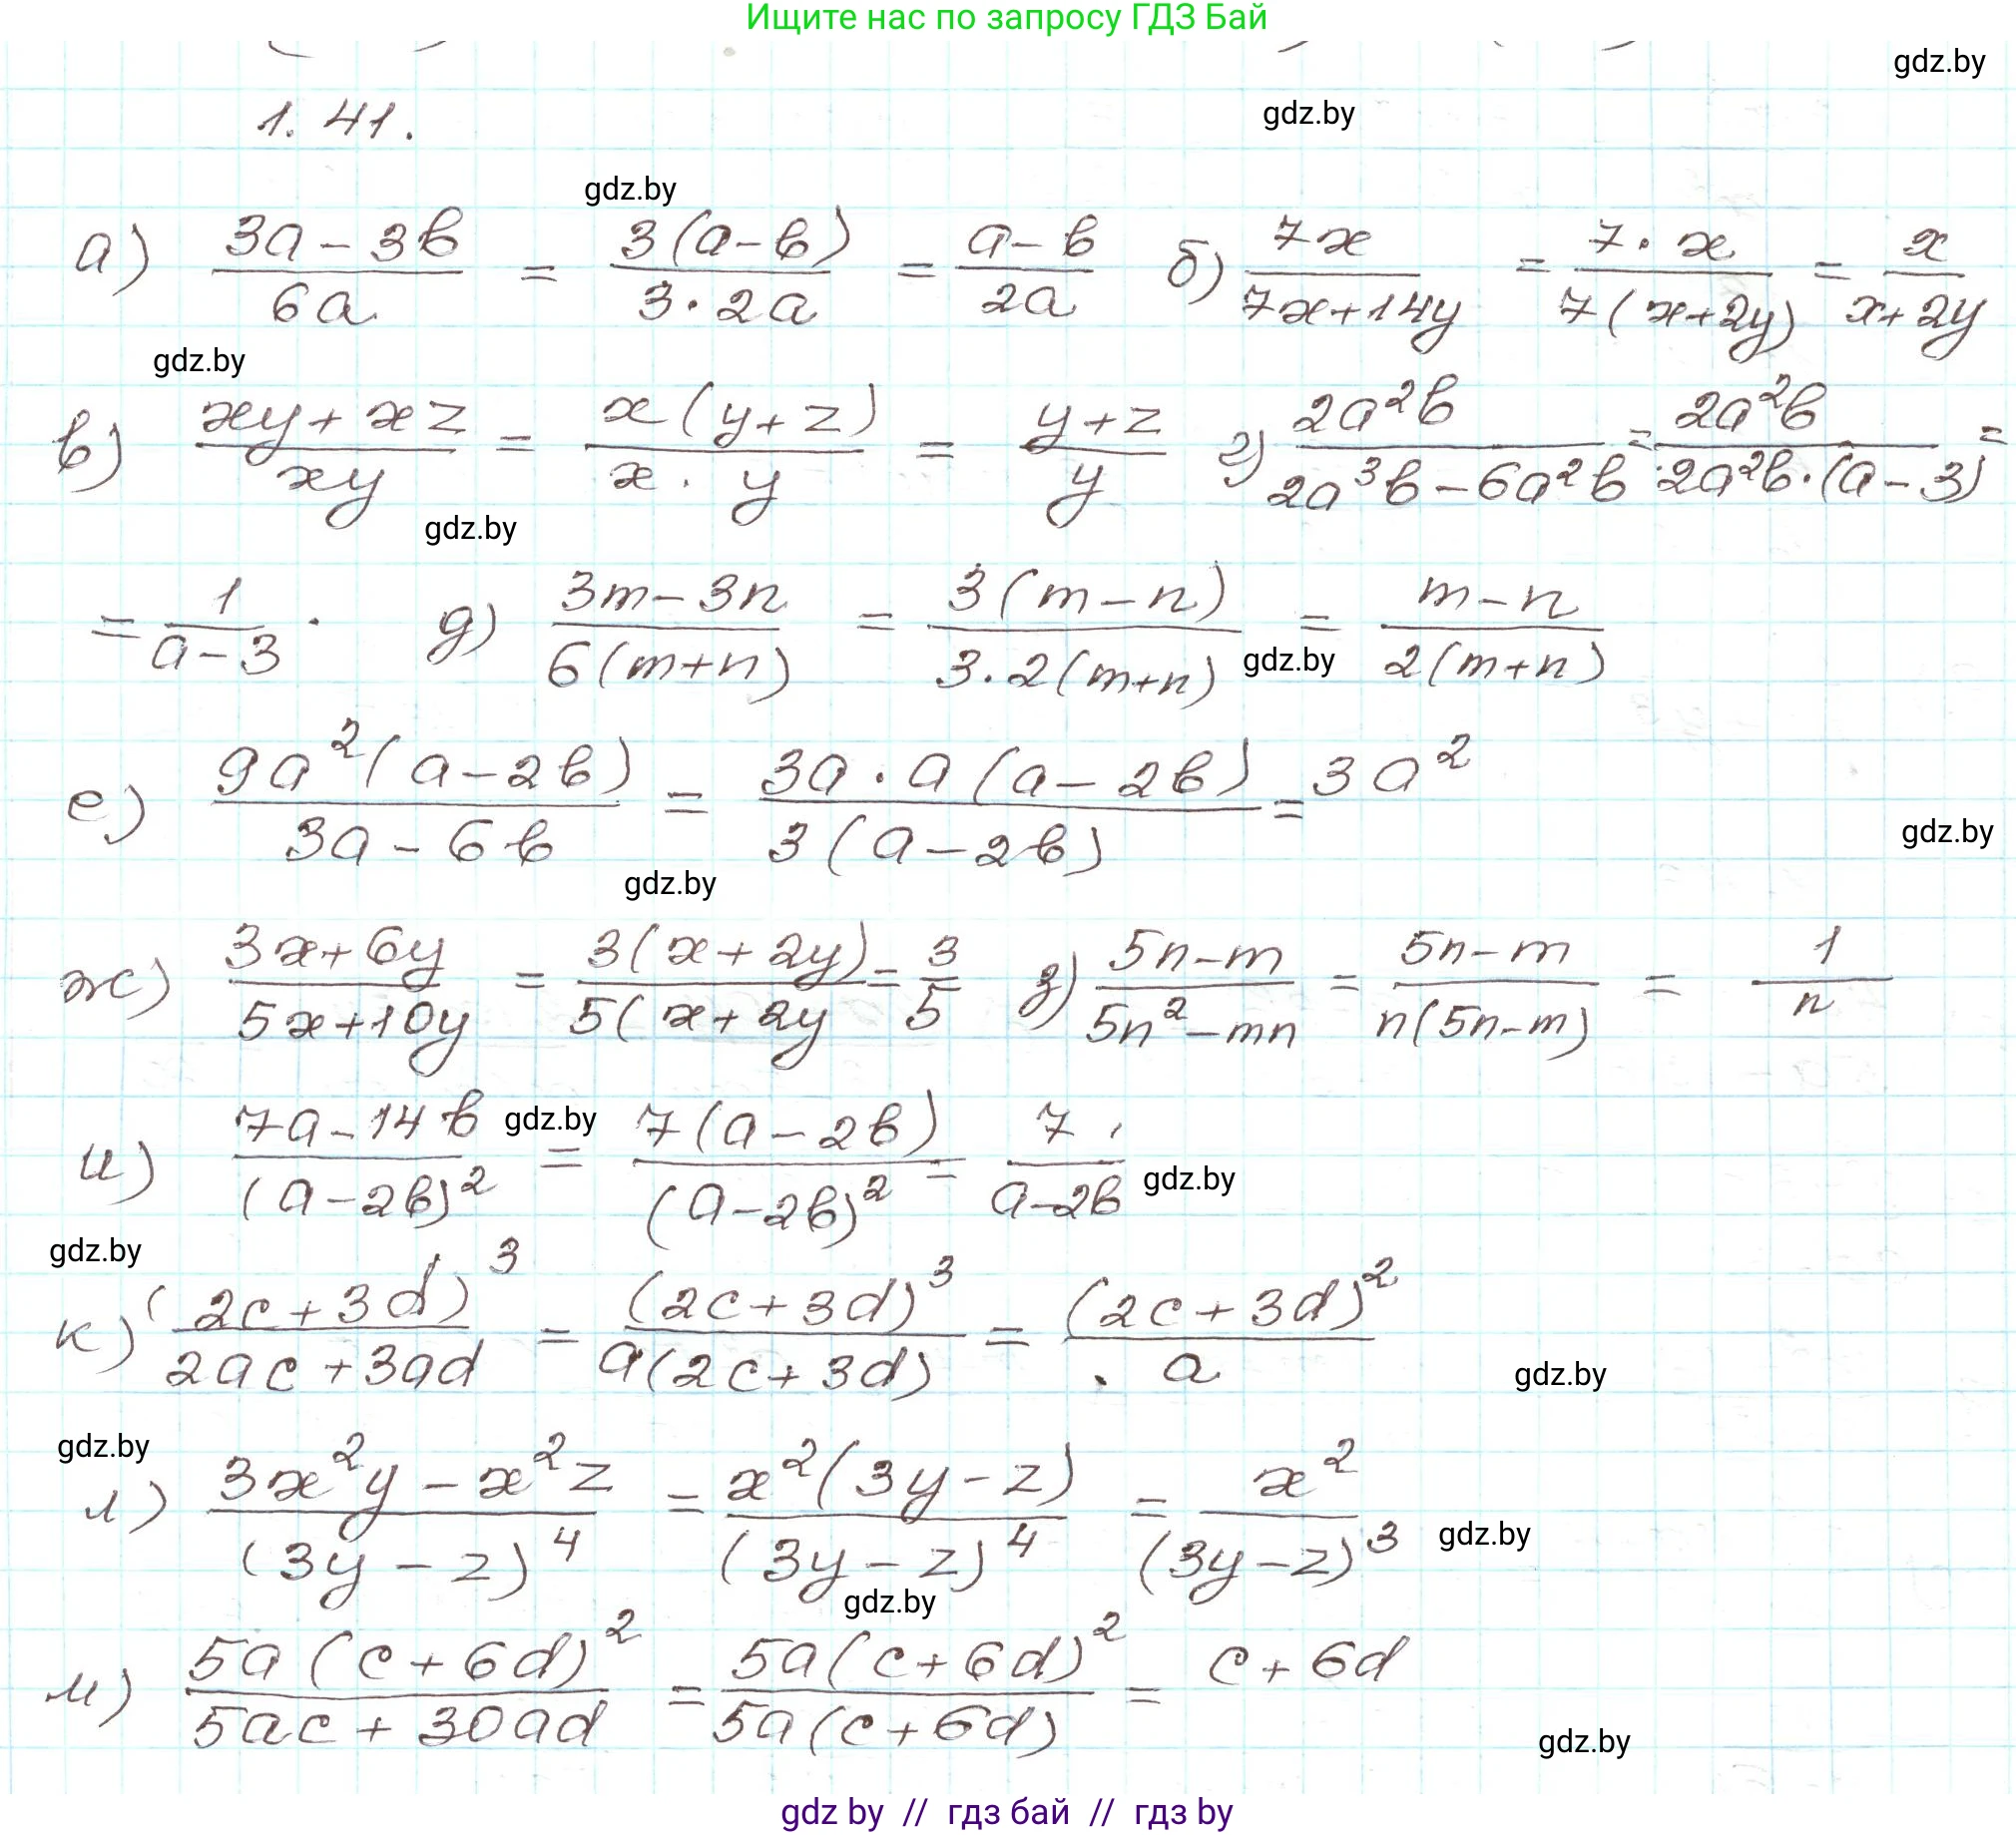 Ищите нас по запросу ГДЗ Бай
gdz.by
1. 41.
gdz.by
gdz.by
а) (3a - 3b)/(6a) = (3(a-b))/(3·2a) = (a-b)/(2a) б) (7x)/(7x+14y) = (7·x)/(7(x+2y)) = x/(x+2y)
gdz.by
в) (xy+xz)/(xy) = (x(y+z))/(x·y) = (y+z)/y г) (2a²b)/(2a³b-6a²b) = (2a²b)/(2a²b·(a-3)) =
gdz.by
= 1/(a-3). д) (3m-3n)/(6(m+n)) = (3(m-n))/(3·2(m+n)) = (m-n)/(2(m+n))
gdz.by
е) (9a²(a-2b))/(3a-6b) = (3a·a(a-2b))/(3(a-2b)) = 3a²
gdz.by
gdz.by
ж) (3x+6y)/(5x+10y) = (3(x+2y))/(5(x+2y) = 3/5 з) (5n-m)/(5n²-mn) = (5n-m)/(n(5n-m)) = 1/n
и) (7a-14b)/((a-2b)²) = (7(a-2b))/((a-2b)²) = 7/(a-2b)
gdz.by
gdz.by
gdz.by
к) ((2c+3d)³)/(2ac+3ad) = ((2c+3d)³)/(a(2c+3d)) = ((2c+3d)²)/a
gdz.by
gdz.by
л) (3x²y-x²z)/((3y-z)⁴) = (x²(3y-z))/((3y-z)⁴) = x²/((3y-z)³)
gdz.by
gdz.by
м) (5a(c+6d)²)/(5ac+30ad) = (5a(c+6d)²)/(5a(c+6d)) = c+6d
gdz.by
gdz by // гдз бай // гдз by